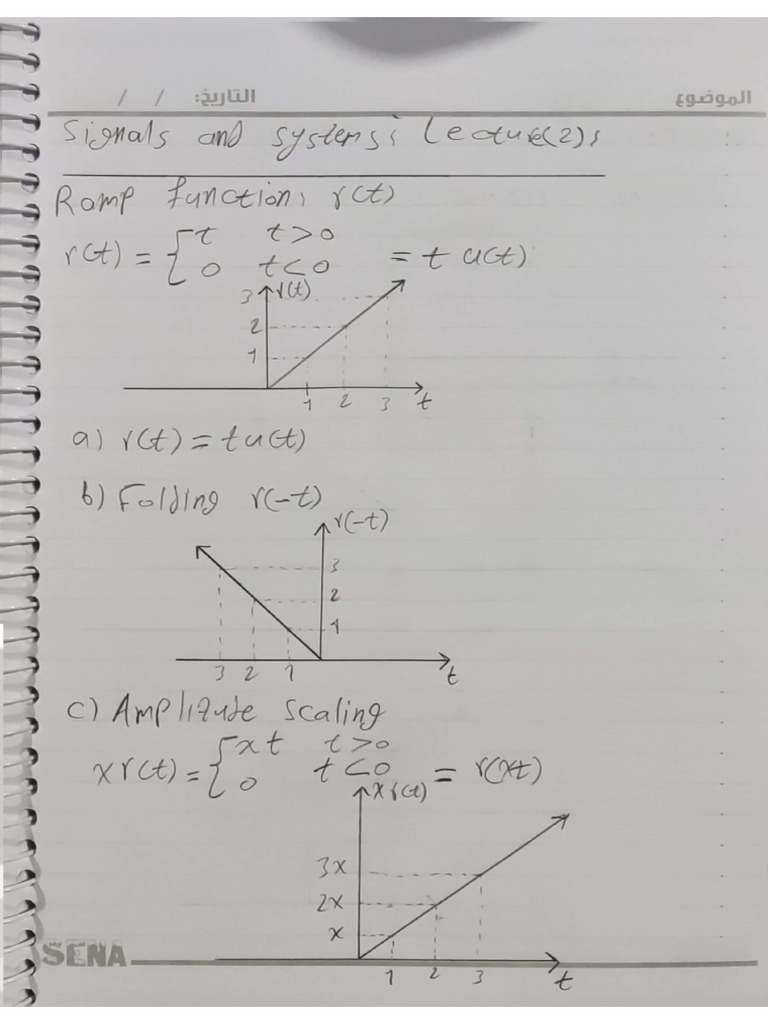 الموضوع التاريخ: / /
Signals and systems: Lecture(2):
Ramp function: r(t)
r(t) = { t t>0
0 t<0 = t u(t)
r(t)
3
2
1
1 2 3 t
a) r(t) = t u(t)
b) Folding r(-t)
r(-t)
3
2
1
3 2 1 t
c) Amplitude scaling
x r(t) = { x t t>0
0 t<0 = r(xt)
x r(t)
3x
2x
x
1 2 3 t
SENA